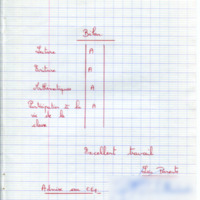 Bilan
Lecture A
Ecriture A
Mathématiques A
Participation à la A
vie de la
classe
Excellent travail
Les Parents
Admise en CE1.